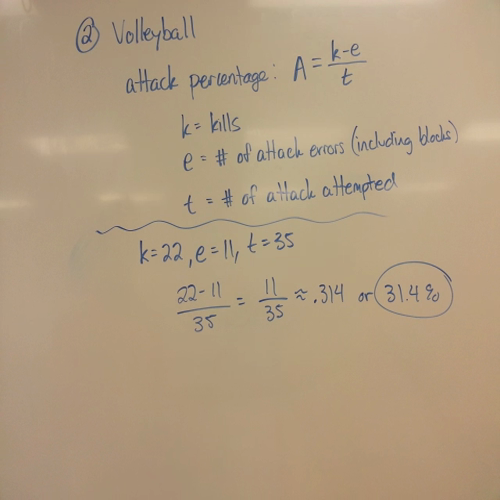 ② Volleyball
attack percentage: A = k-e/t
k = kills
e = # of attack errors (including blocks)
t = # of attack attempted
k=22, e=11, t=35
22-11/35 = 11/35 ≈ .314 or 31.4%